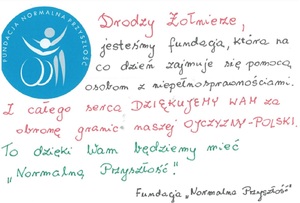 FUNDACJA NORMALNA PRZYSZŁOŚĆ
Drodzy Żołnierze,
jesteśmy fundacją, która na
co dzień zajmuje się pomocą
osobom z niepełnosprawnościami.
Z całego serca DZIĘKUJEMY WAM za
obronę granic naszej OJCZYZNY-POLSKI.
To dzięki Wam będziemy mieć
„Normalną Przyszłość".
Fundacja „Normalna Przyszłość"